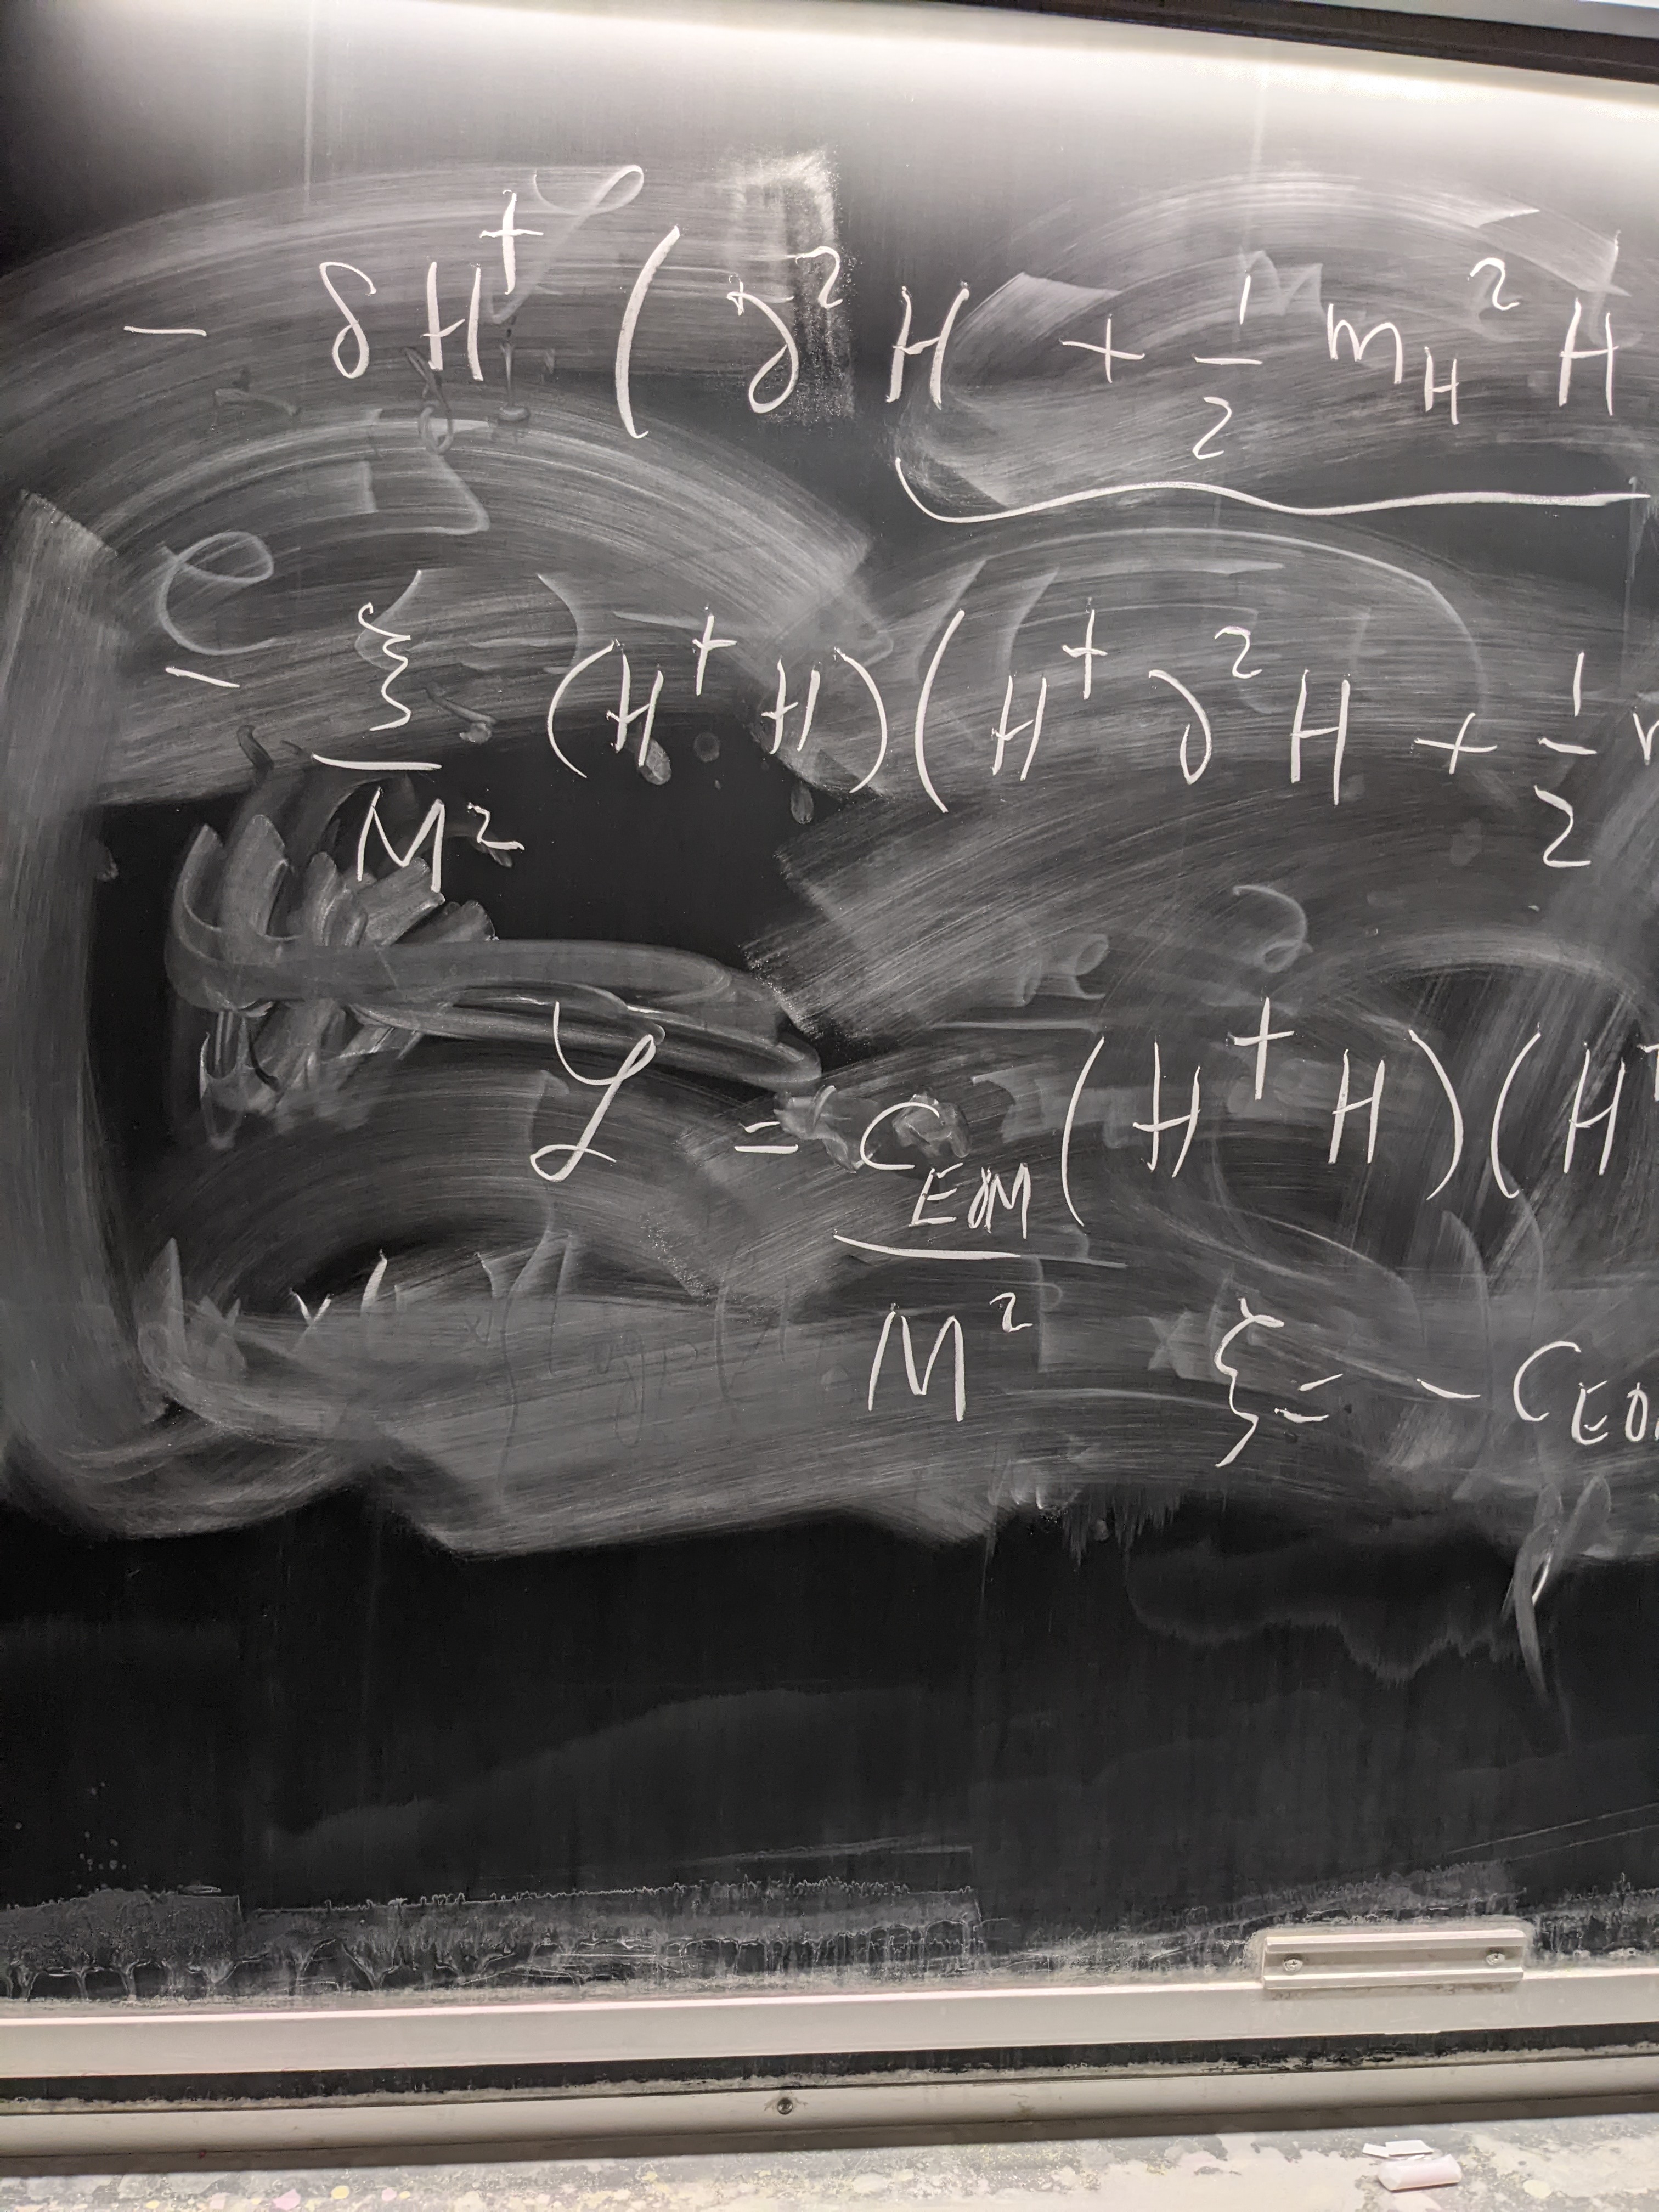 − δH† ( ∂² H + 1/2 m_H² H
− ξ/M² (H† H) (H† ∂² H + 1/2
ℒ = C_EOM/M² (H† H) (H†
ξ = − C_EO